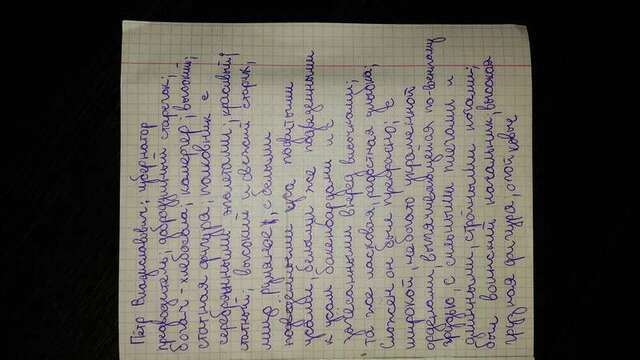 Пётр Владиславович: губернатор
предводитель; добродушный старичок;
богач-хлебосола, камергер; высокий;
статная фигура, полковник с
серебряными эполетами; красивый;
статный; высокий и свежий старик;
лицо румяное, с белыми
подведёнными уса подвитыми
усами, белыми же подведенными
к усам бакенбардами и с
зачёсанными вперед височками;
та же ласковая, радостная улыбка;
Сложен он был прекрасно; с
широкой, небогато украшенной
орденами, выпячивающейся по-военному
грудью, с сильными плечами и
длинными, стройными ногами;
был воинский начальник, высокая
грузная фигура,